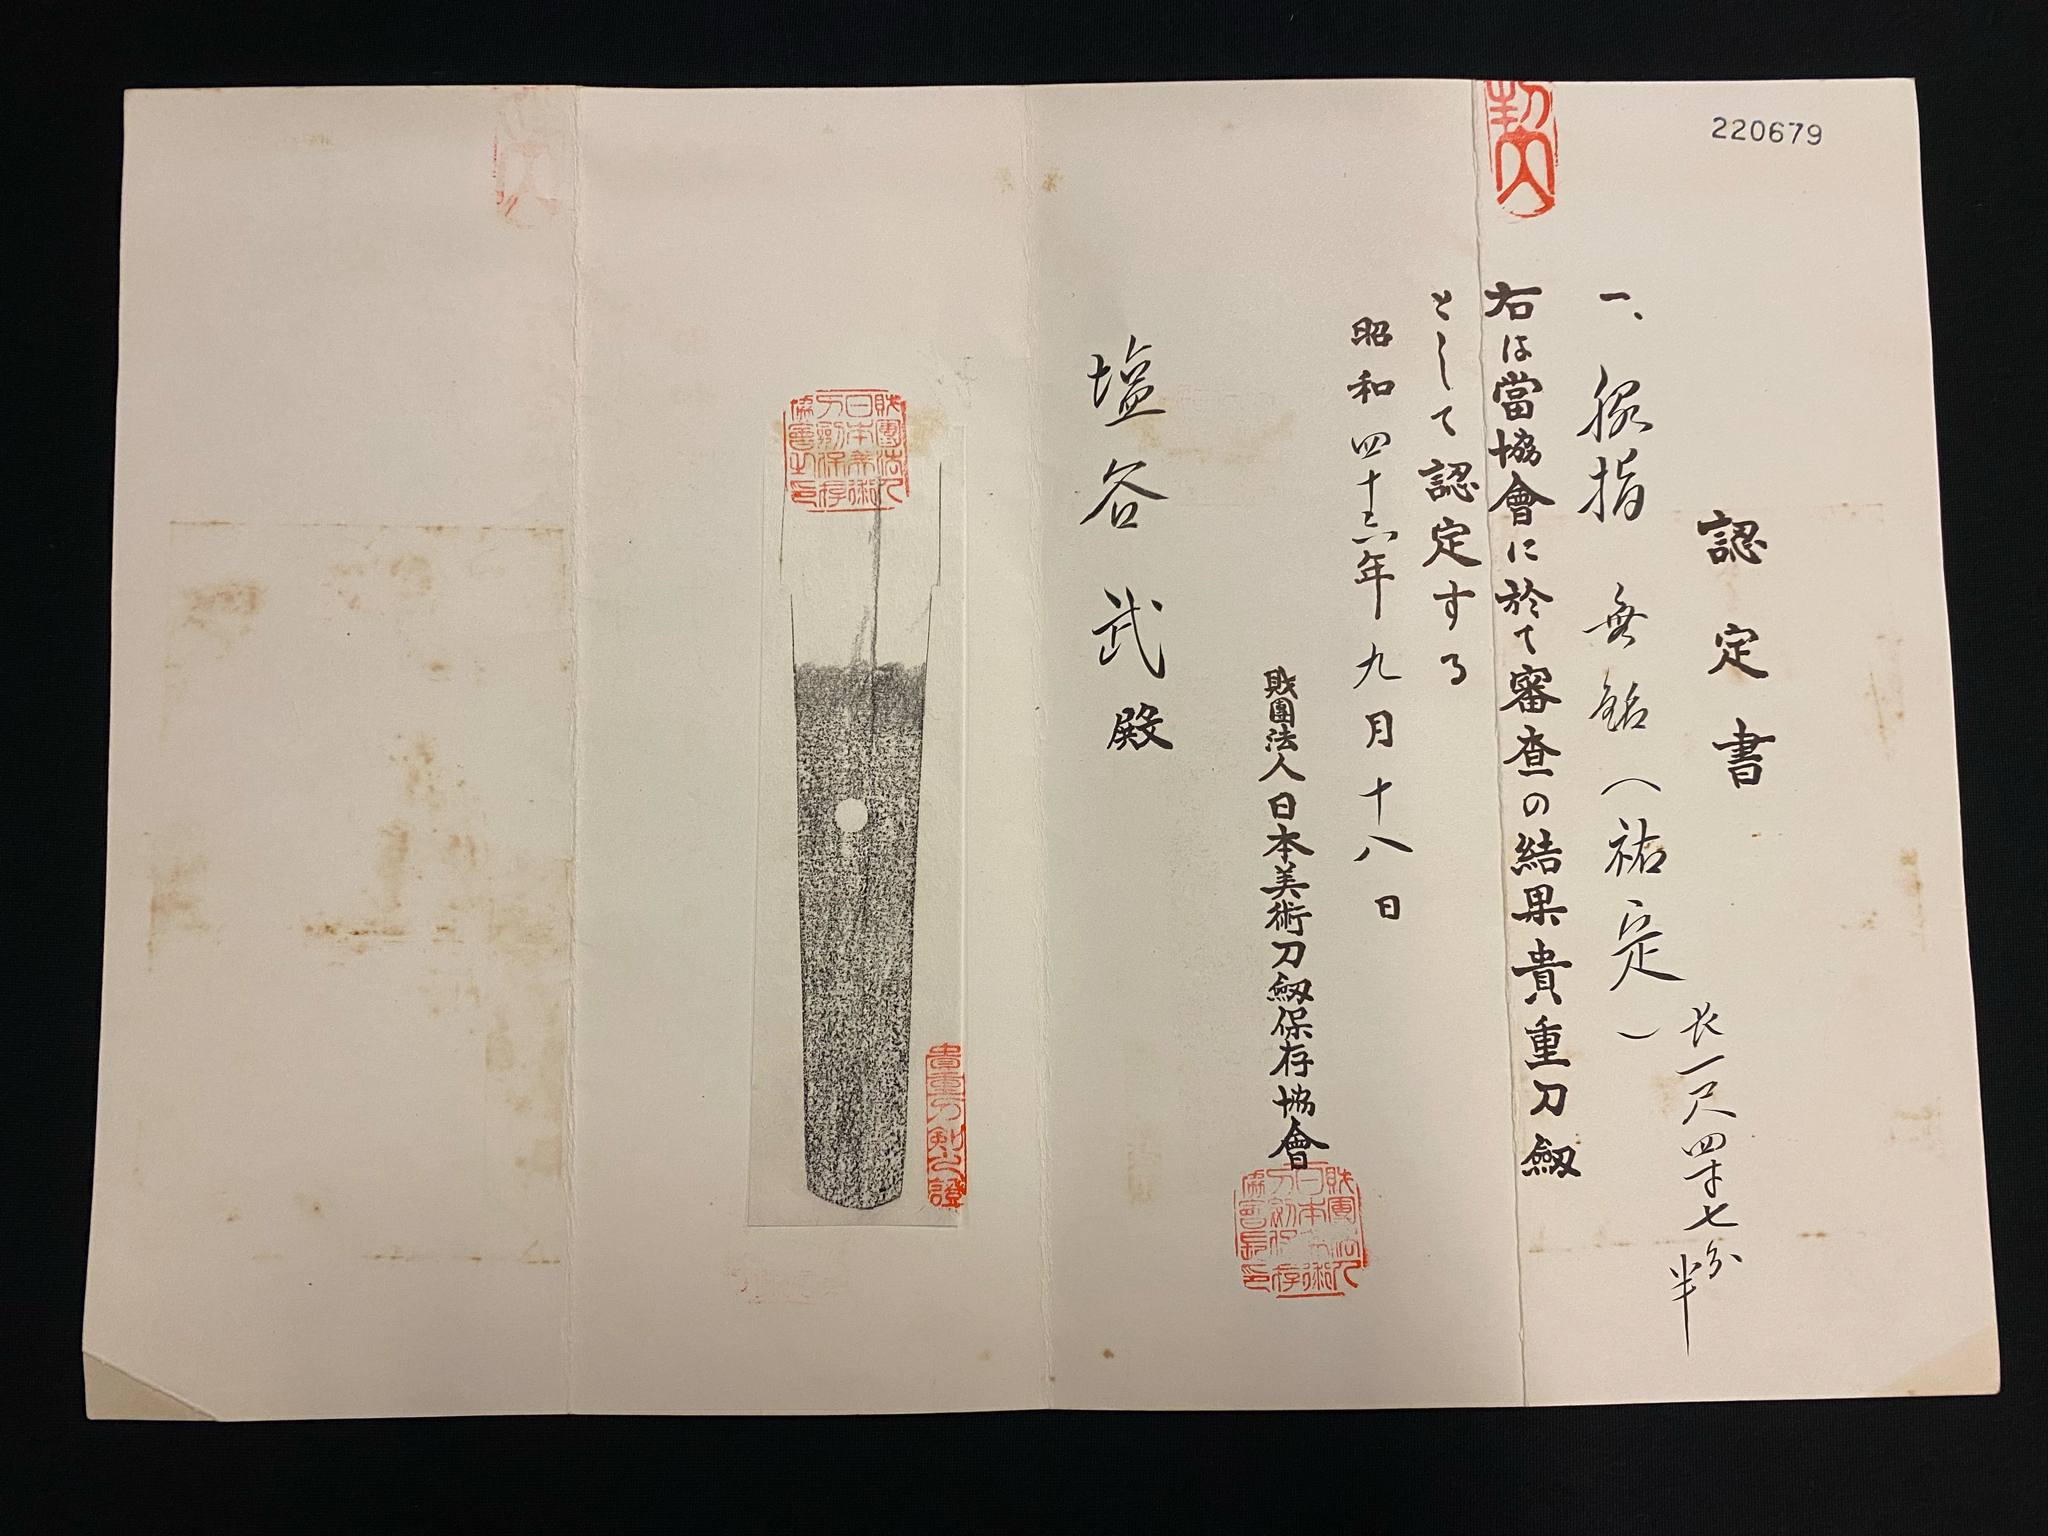 220679
認定書
一、脇指 無銘(祐定)
長一尺四寸七分半
右は當協會に於て審査の結果貴重刀劔
として認定する
昭和四十六年九月十八日
財團法人日本美術刀劔保存協會
財團法人日本美術刀劔保存協會長印
塩谷武殿
財團法人日本美術刀劔保存協會之印
貴重刀剣之證